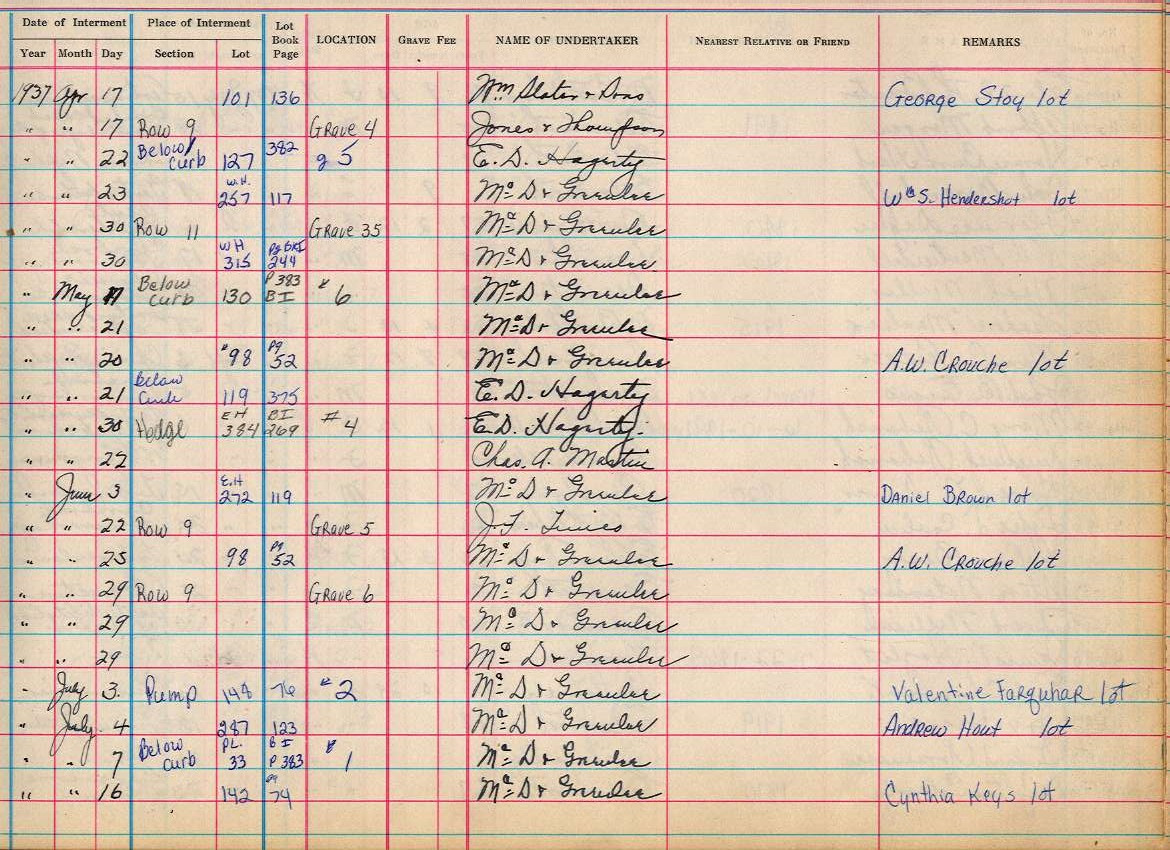 Date of Interment Place of Interment Lot Book Page LOCATION GRAVE FEE NAME OF UNDERTAKER NEAREST RELATIVE OR FRIEND REMARKS
Year Month Day Section Lot
1937 Apr 17 101 136 Wm Slater & Sons George Stoy lot
" " 17 Row 9 Grave 4 Jones & Thompson
" " 22 Below curb 127 382 g 5 E. D. Hagerty
" " 23 W.H. 257 117 McD & Greenlee Wm S. Hendershot lot
" " 30 Row 11 Grave 35 McD & Greenlee
" " 30 WH 315 Pg BKI 244 McD & Greenlee
" May Below curb 130 P 383 B I # 6 McD & Greenlee
" " 21 McD & Greenlee
" " 20 #98 Pg 52 McD & Greenlee A.W. Crouche lot
" " 21 Below curb 119 375 E. D. Hagerty
" " 30 Hedge EH 384 BI 269 # 4 E. D. Hagerty.
" " 22 Chas. A. Martin
" June 3 E.H 272 119 McD & Greenlee Daniel Brown lot
" " 22 Row 9 Grave 5 J. F.
" " 25 98 Pg 52 McD & Greenlee A.W. Crouche lot
" " 29 Row 9 Grave 6 McD & Greenlee
" " 29 McD & Greenlee
" " 29 McD & Greenlee
" July 3. Pump 148 76 # 2 McD & Greenlee Valentine Farquhar lot
" July 4 287 123 McD & Greenlee Andrew Hout lot
" " 7 Below curb PL. 33 B I P 383 # 1 McD & Greenlee
" " 16 142 pg 74 McD & Greenlee Cynthia Keys lot